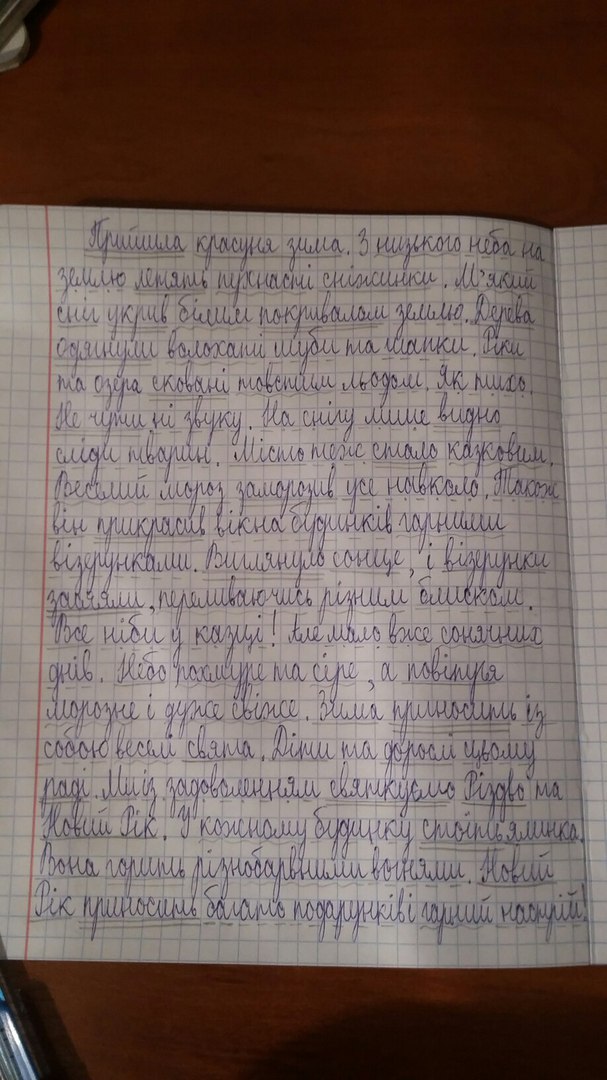 Прийшла красуня зима. З низького неба на
землю летять пухнасті сніжинки. М'який
сніг укрив білим покривалом землю. Дерева
одягнули волохаті шуби та шапки. Ріки
та озера сковані товстим льодом. Як тихо.
Не чути ні звуку. На снігу лише видно
сліди тварин. Місто теж стало казковим.
Веселий мороз заморозив усе навколо. Також
він прикрасив вікна будинків гарними
візерунками. Виглянуло сонце, і візерунки
засяяли, переливаючись різним блиском.
Все ніби у казці! Але мало вже сонячних
днів. Небо похмуре та сіре, а повітря
морозне і дуже свіже. Зима приносить із
собою веселі свята. Діти та дорослі цьому
раді. Ми із задоволенням святкуємо Різдво та
Новий Рік. У кожному будинку стоїть ялинка.
Вона горить різнобарвними вогнями. Новий
Рік приносить багато подарунків і гарний настрій!